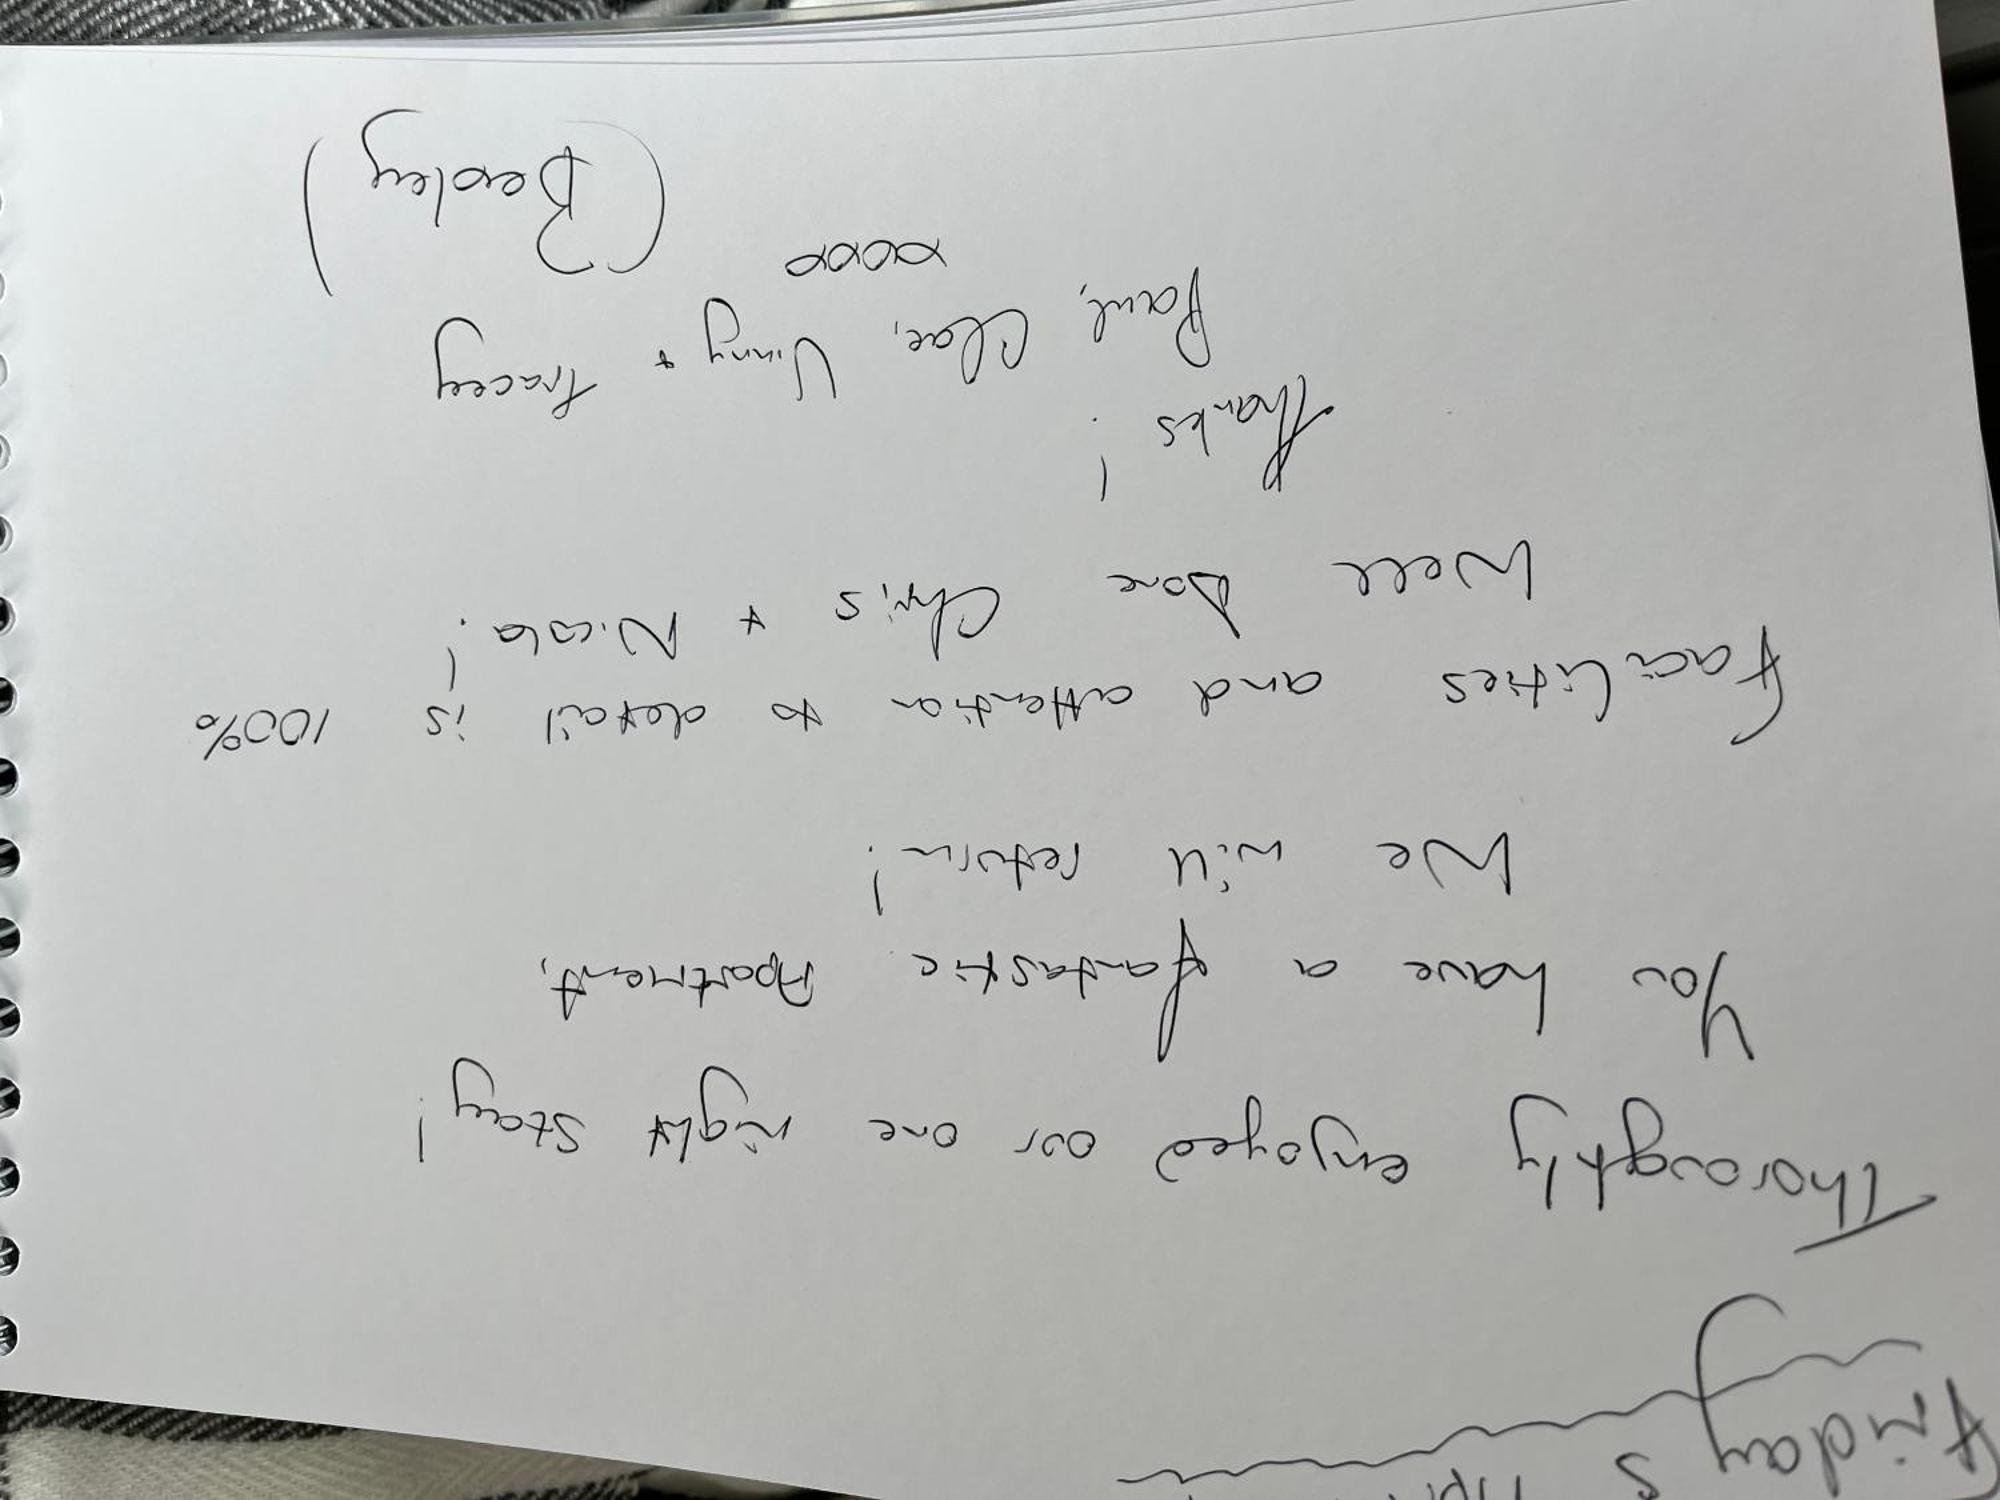 Friday 5
Thoroughly enjoyed our one night stay!
You have a fantastic Apartment,
We will return!
Facilities and attention to detail is 100%
Well Done Chris + Nicola!
Thanks!
Paul, Clare, Vinny + Tracey
xxxx
(Bexley)